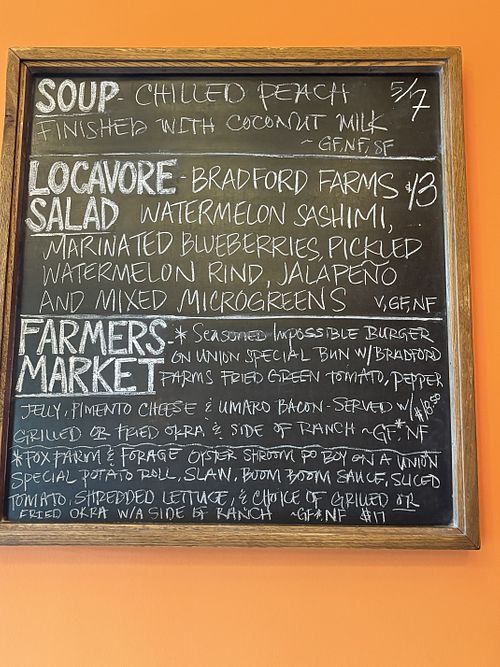 SOUP - CHILLED PEACH 5/7
FINISHED WITH COCONUT MILK
~ GF, NF, SF
LOCAVORE - BRADFORD FARMS $13
SALAD WATERMELON SASHIMI,
MARINATED BLUEBERRIES, PICKLED
WATERMELON RIND, JALAPEÑO
AND MIXED MICROGREENS V, GF, NF
FARMERS - * SEASONED IMPOSSIBLE BURGER
MARKET ON UNION SPECIAL BUN W/ BRADFORD
FARMS FRIED GREEN TOMATO, PEPPER
JELLY, PIMENTO CHEESE & UMARO BACON - SERVED W/
GRILLED OR FRIED OKRA & SIDE OF RANCH ~ GF,* NF
*FOX FARM & FORAGE OYSTER SHROOM PO BOY ON A UNION
SPECIAL POTATO ROLL, SLAW, BOOM BOOM SAUCE, SLICED
TOMATO, SHREDDED LETTUCE, & CHOICE OF GRILLED OR
FRIED OKRA W/A SIDE OF RANCH ~GF*, NF $17